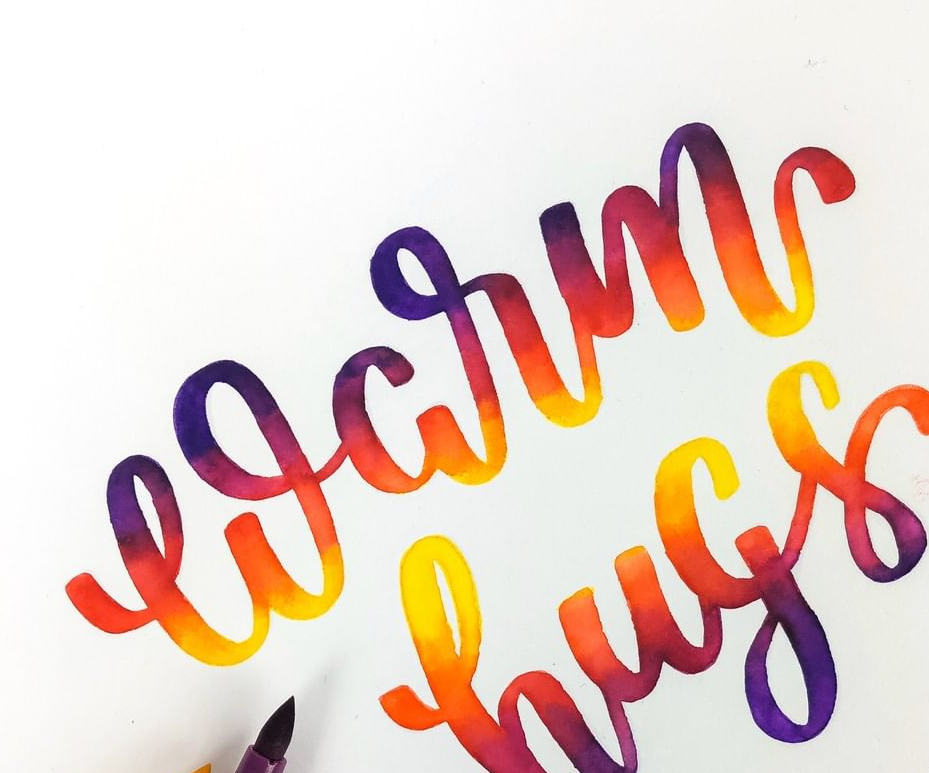 warm
hugs